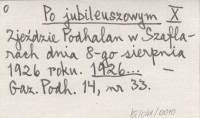 Po jubileuszowym X
Zjeździe Podhalan w Szafla-
rach dnia 8-go sierpnia
1926 roku. 1926... —
Gaz. Podh. 14, nr 33.